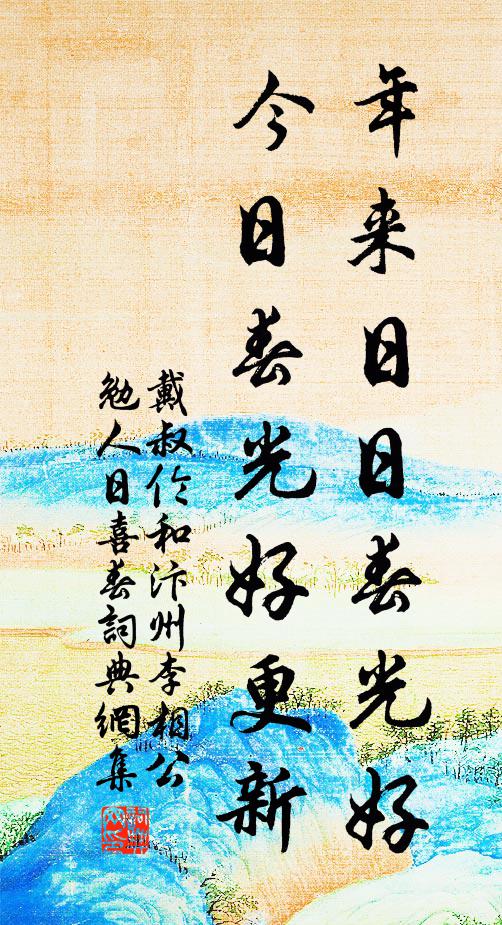 年来日日春光好
今日春光好更新
戴叔伦和汴州李相公
勉人日喜春詞典網集